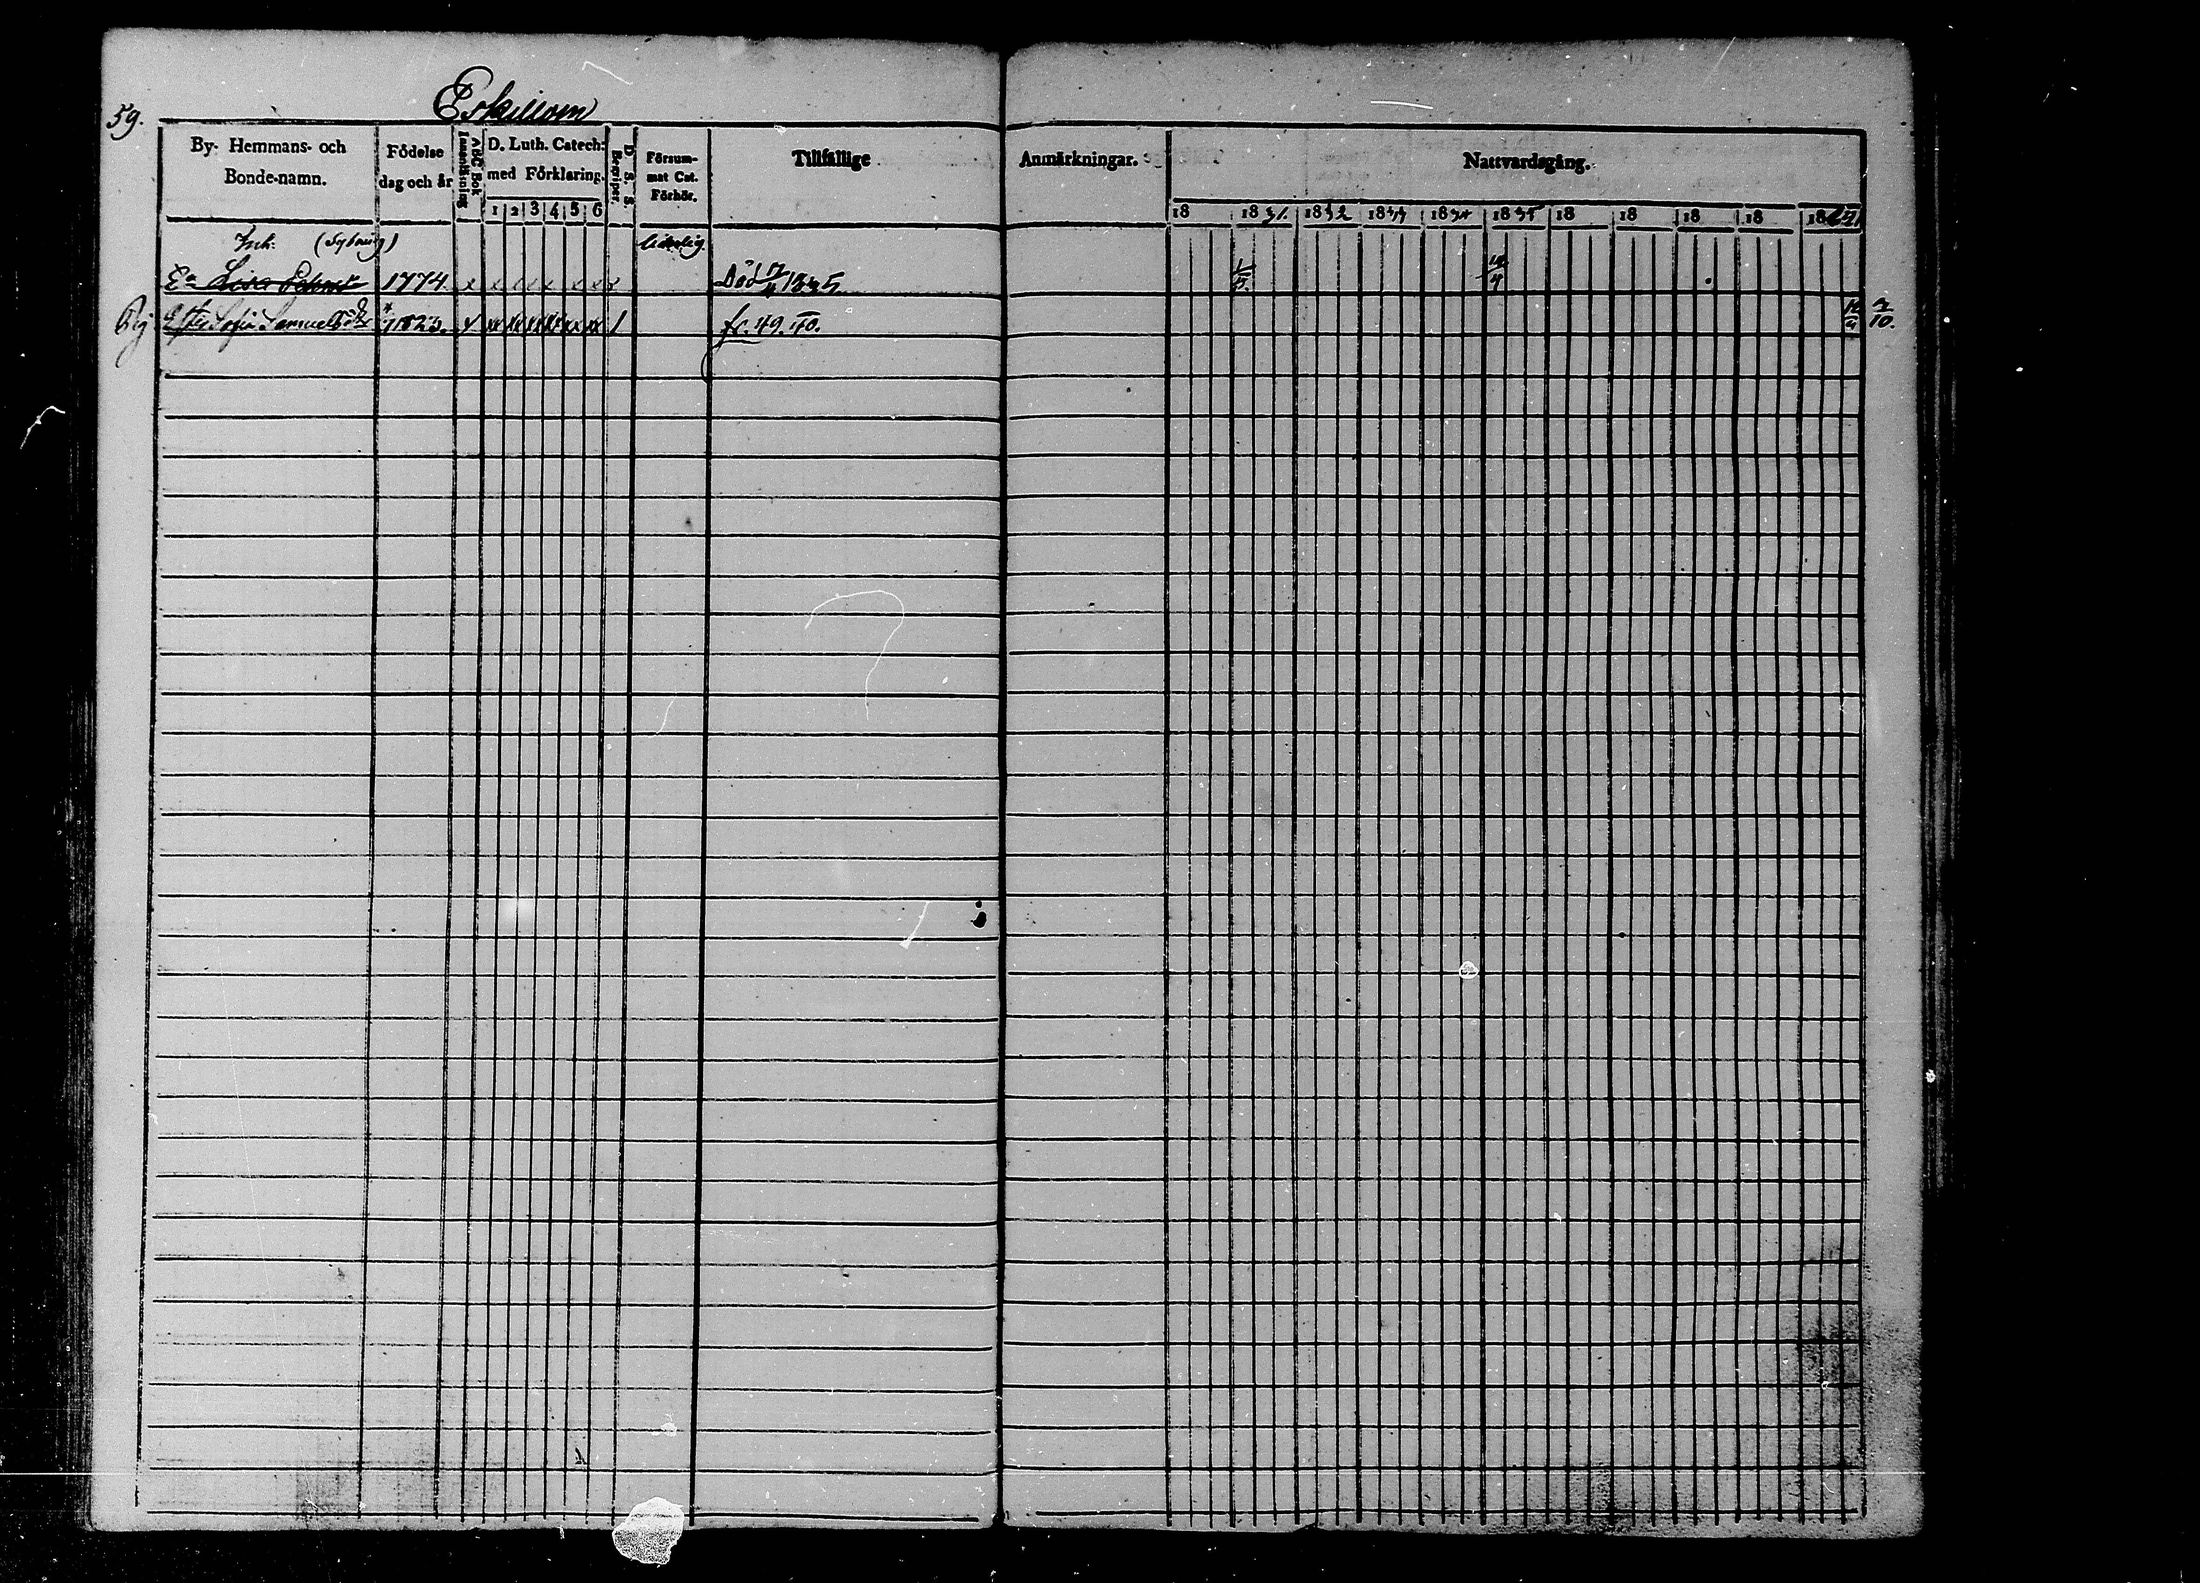 59.
Eskillom
By- Hemmans- och Bonde-namn.
Födelse dag och år
ABC Bok Innanläsning
D. Luth. Catech: med Förklaring.
1 2 3 4 5 6
D. S. S. Begriper.
Försum- mat Cat. Förhör.
Tillfällige
Anmärkningar.
Nattvardsgång.
18 18 31. 18 32 18 33 18 34 18 35 18 18 18 18 18
Inh:
Ea Lisa 1774 x x x x x x x x Död 17/4 1835 1/5. 12/4
Sofia Samuelsdr 1823. x xx xx xx xx xx xx 1 fr. 49. 40. 2/10.